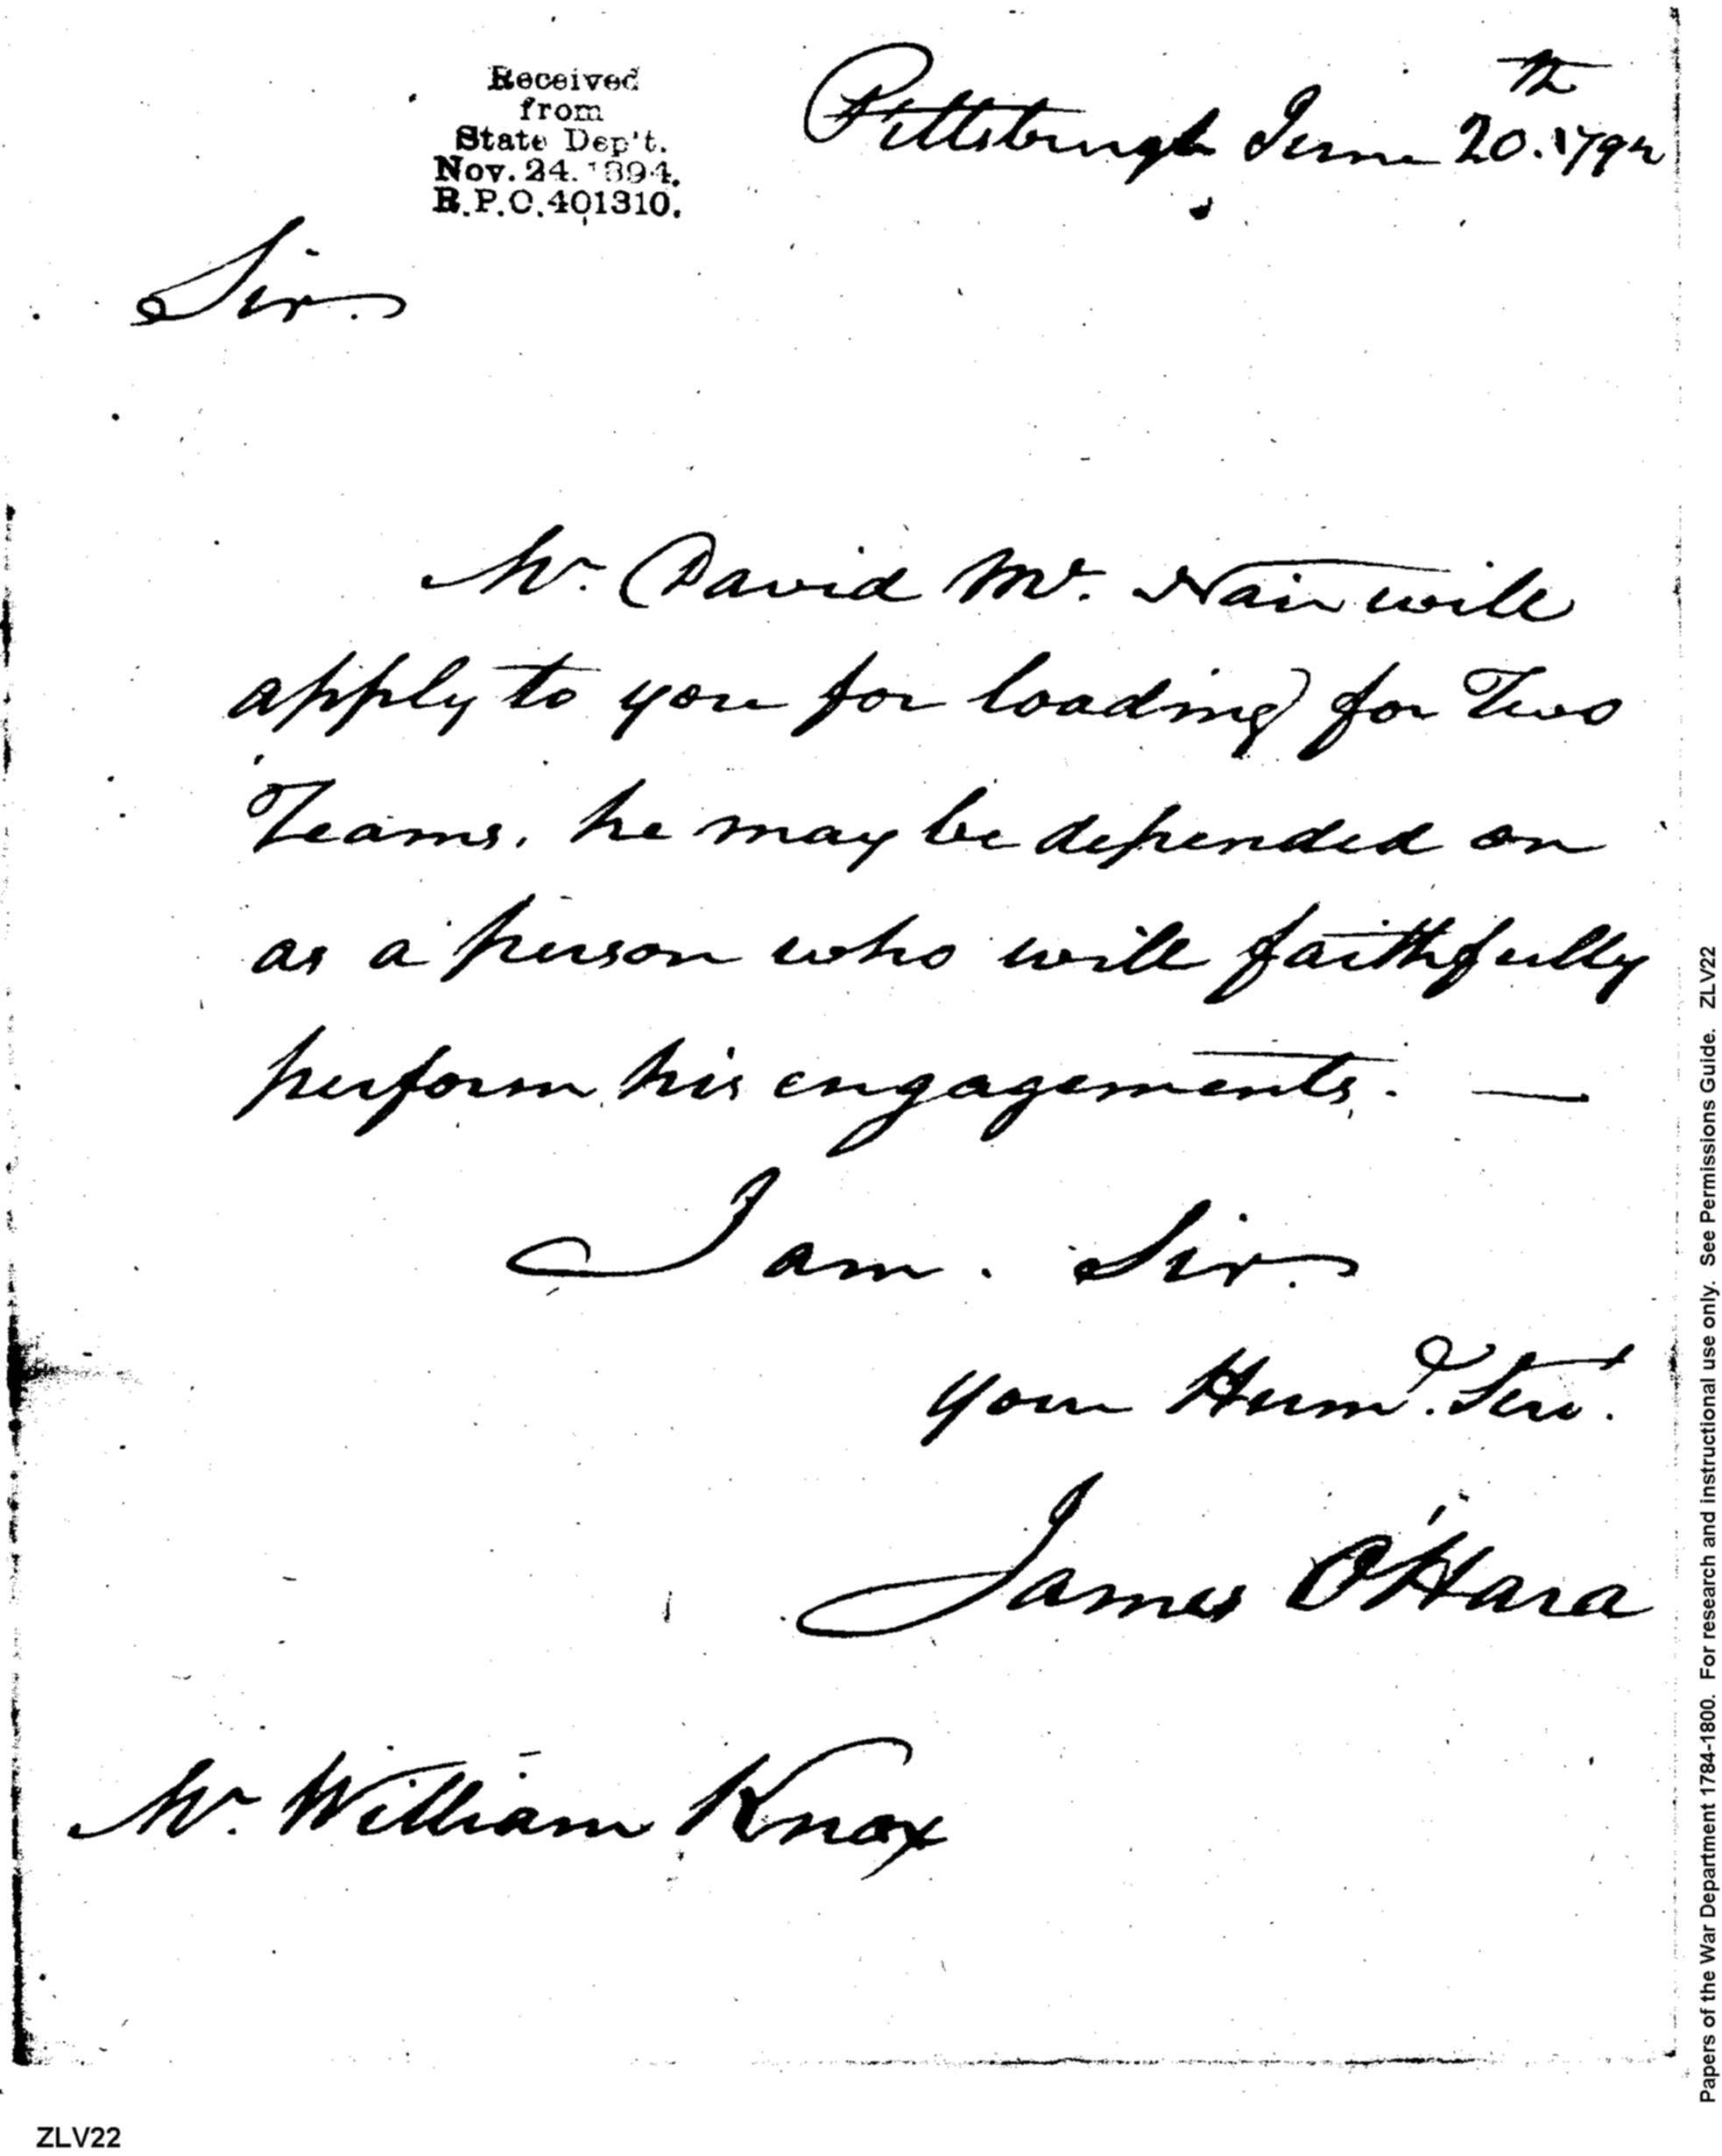 Received
from
State Dep't.
Nov. 24. 1894.
R.P.O. 401310.
Pittsburgh June 20.th 1792
Sir.
Mr. David Mc. Nair will
apply to you for loading for Two
Teams, he may be depended on
as a person who will faithfully
perform his engagements. —
I am. Sir.
your Hum.e Serv.t
James O'Hara
Mr. William Knox
ZLV22
Papers of the War Department 1784-1800. For research and instructional use only. See Permissions Guide. ZLV22